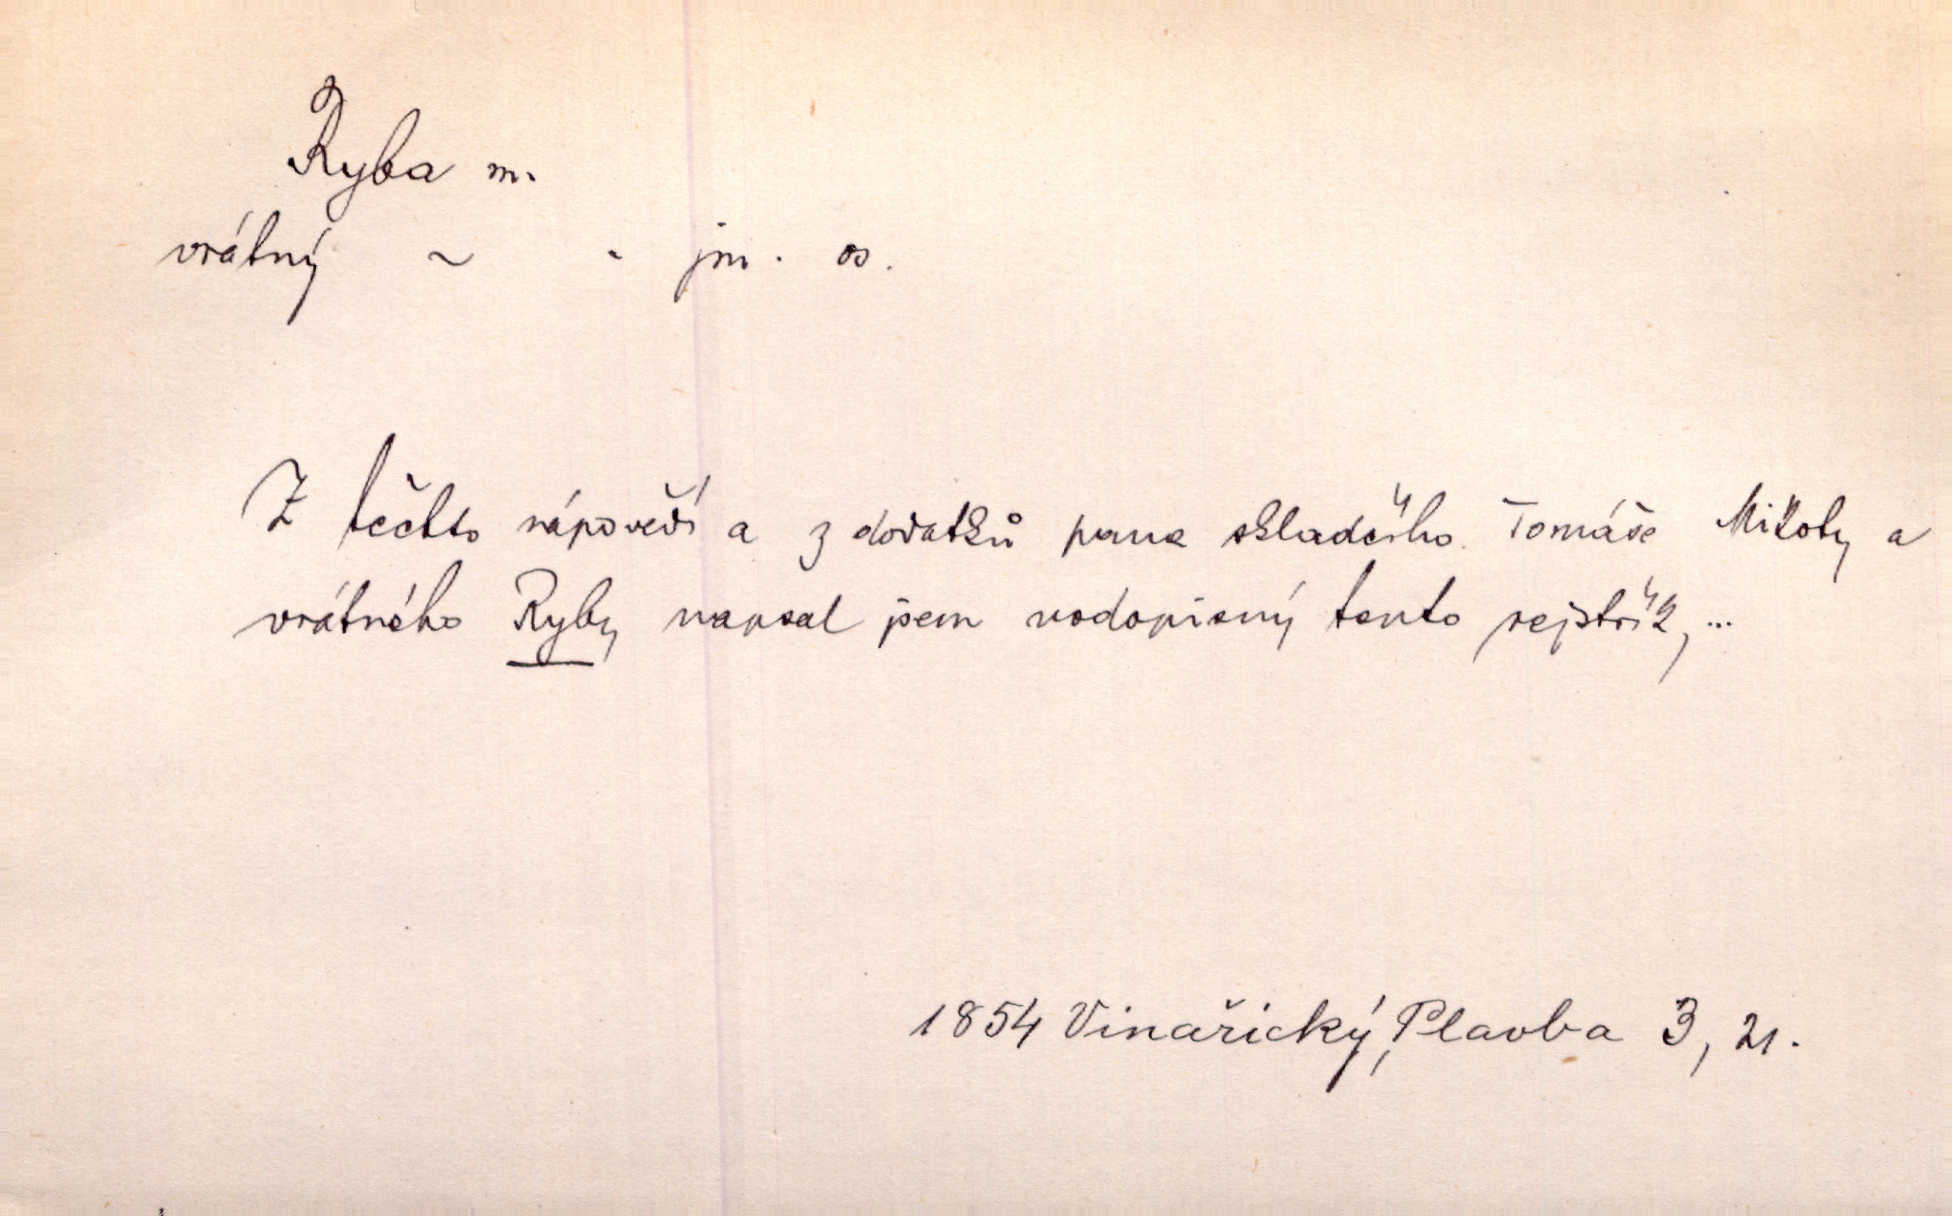 Ryba m.
vrátný ~ - jm. os.
Z těchto nápovědí a z dodatků pana skladního Tomáše Mikoty a
vrátného Ryby napsal jsem vodopisný tento rejstřík, ...
1854 Vinařický, Plavba 3, 21.